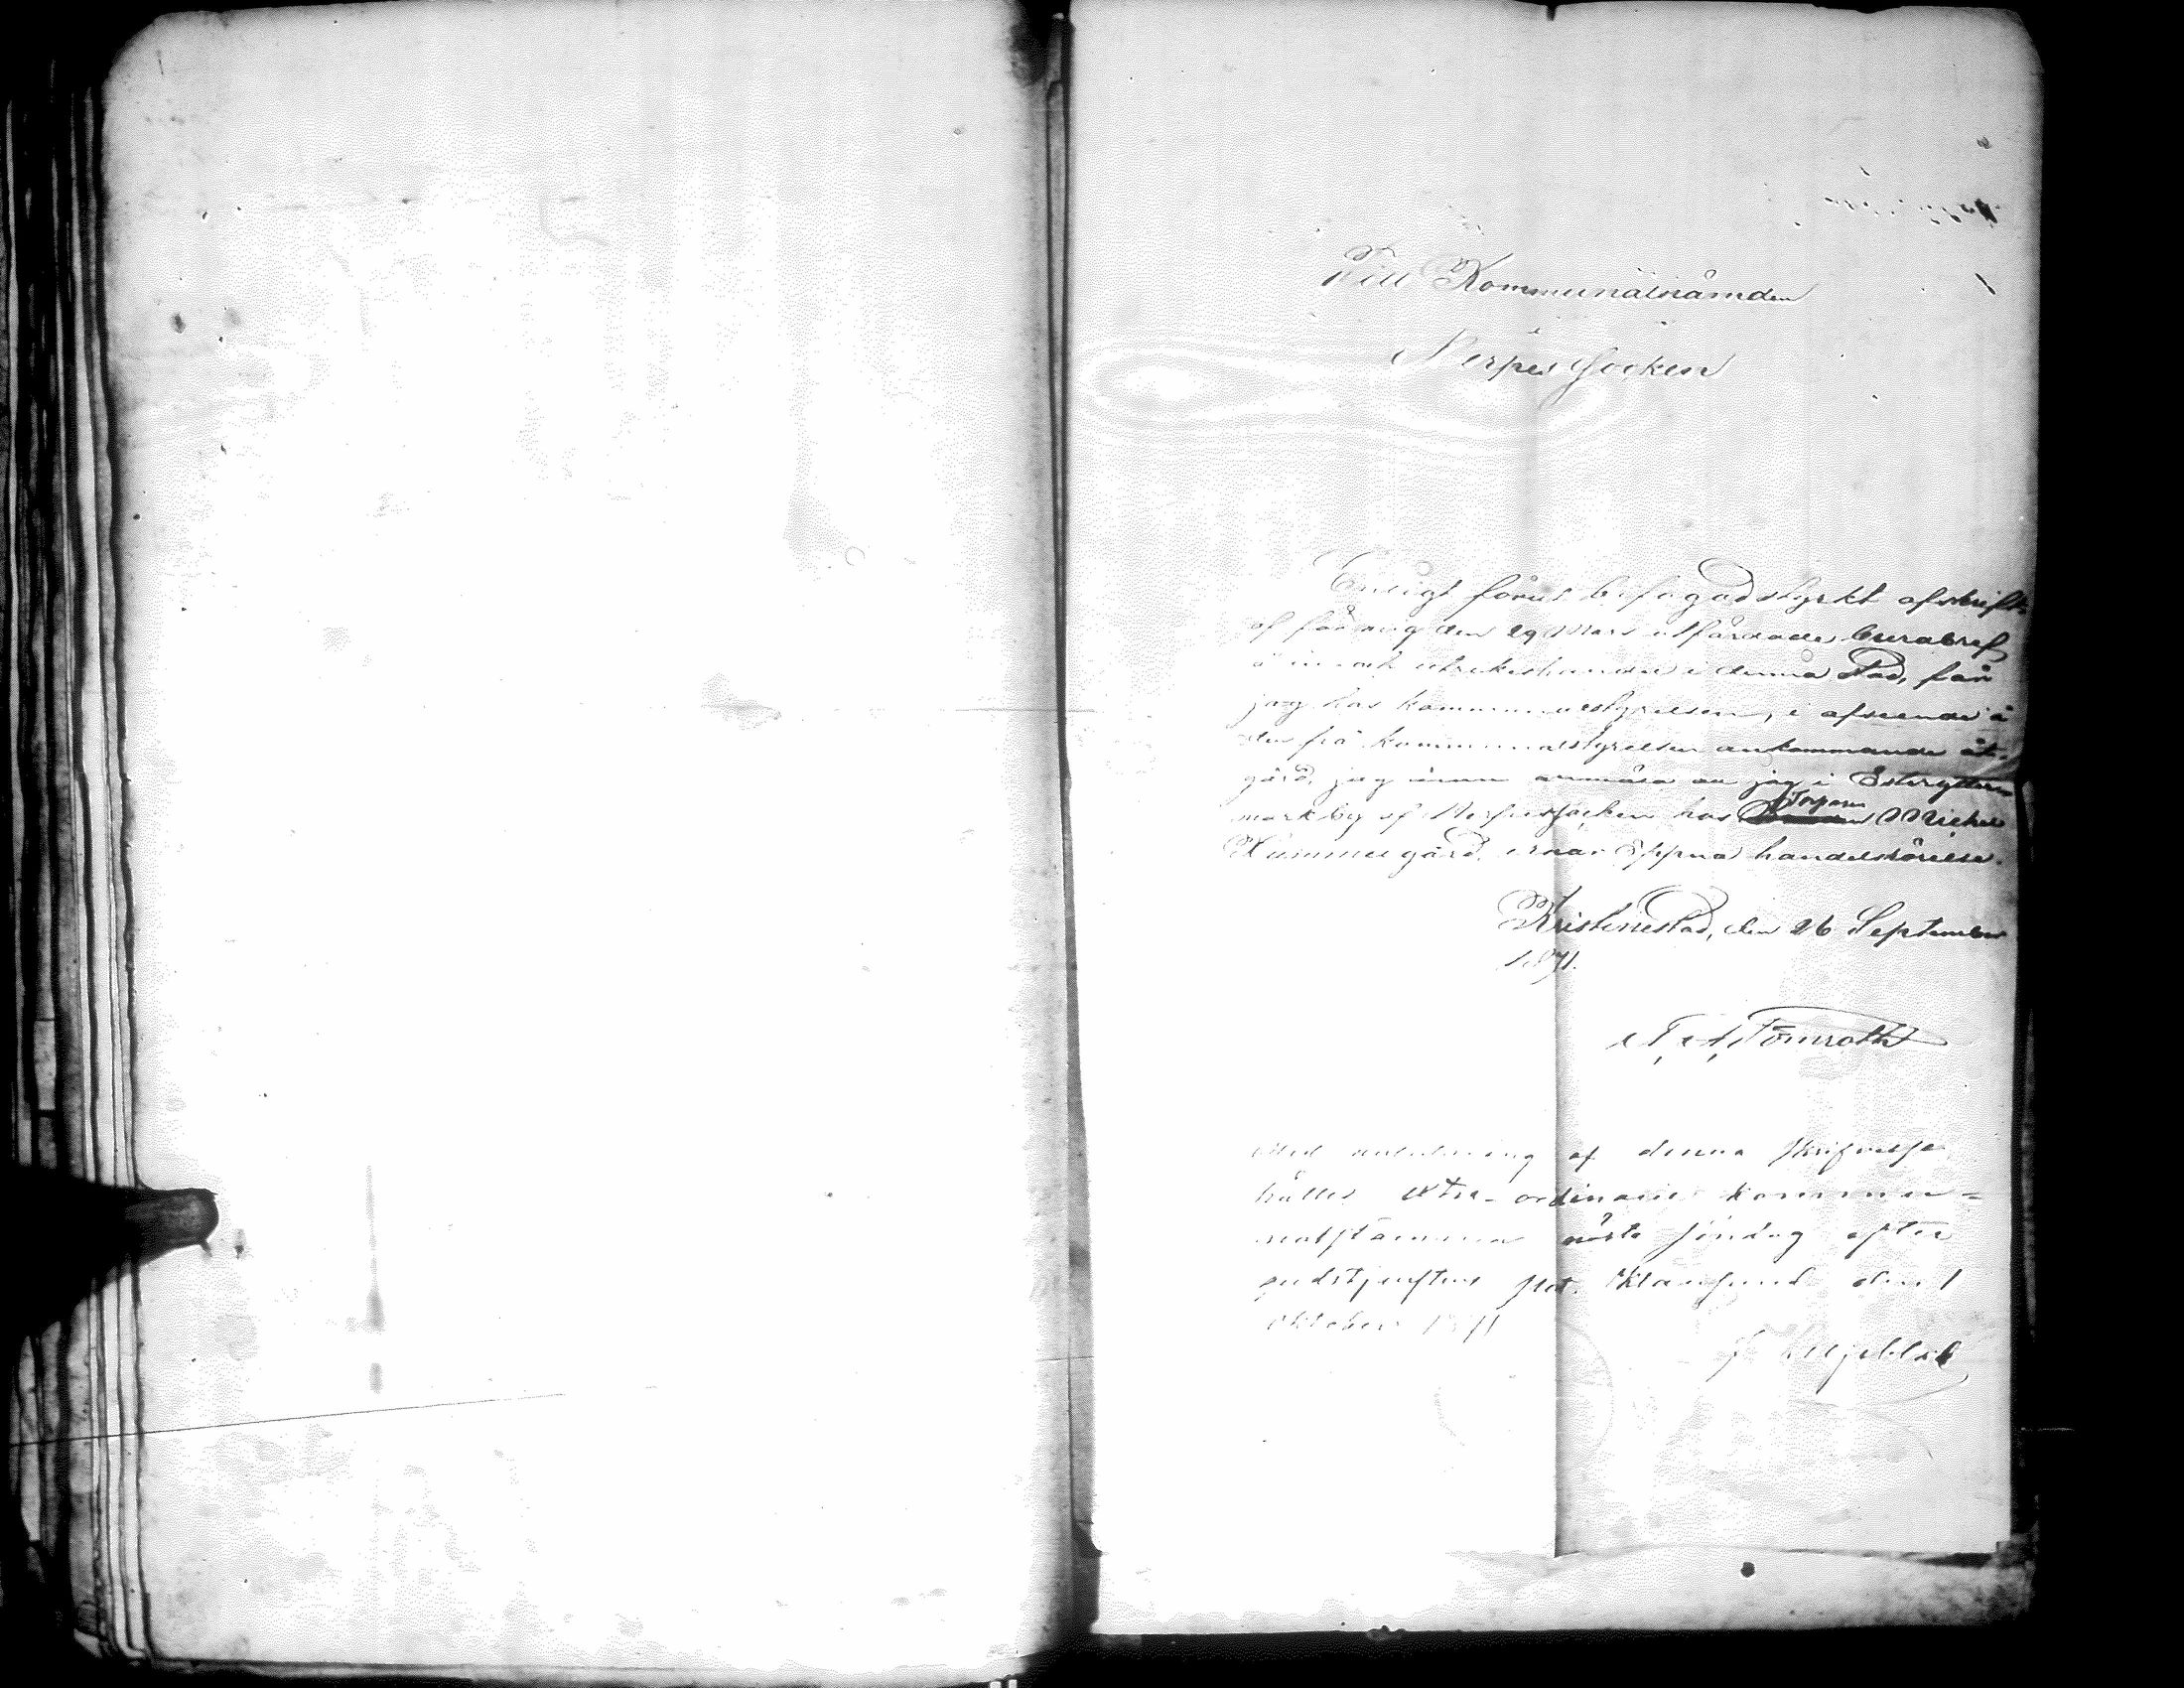 Till Kommunalnämden
i
Nerpes Socken
Enligt förut bifogad styrkt afskrift
af för mig den 29 Mars utfärdade burabref
å in och utrikeshandel i denna Stad, får
jag hos kommunalstyrelsen, i afseende å
den frå kommunalstyrelsen ankommande åt-
gärd, jag anmäla att jag i Östery
mark by af Nerpes socken hos Torparn Michel
gård, öppna handelsrörelse.
Kristinestad, den 26 September
1871.
Med anledning af denna skrifvelse
hålles extra-ordinarie kommu-
nalstämma nästa söndag efter
gudstjensten den 1
Oktober 1871